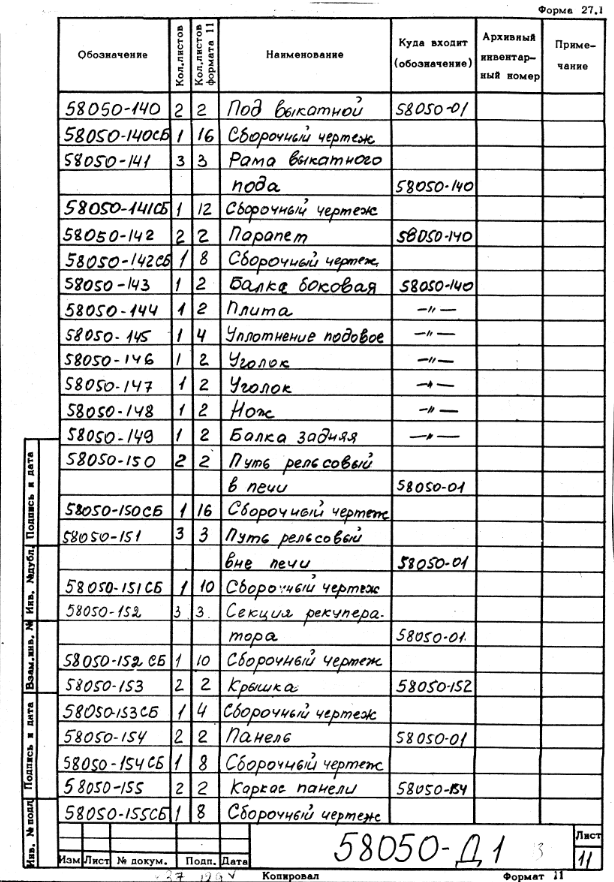 Форма 27.1
Обозначение Кол.листов Кол.листов формата 11 Наименование Куда входит (обозначение) Архивный инвентарный номер Примечание
58050-140 2 2 Под выкатной 58050-01
58050-140СБ 1 16 Сборочный чертеж
58050-141 3 3 Рама выкатного
пода 58050-140
58050-141СБ 1 12 Сборочный чертеж
58050-142 2 2 Парапет 58050-140
58050-142СБ 1 8 Сборочный чертеж
58050-143 1 2 Балка боковая 58050-140
58050-144 1 2 Плита —〃—
58050-145 1 4 Уплотнение подовое —〃—
58050-146 1 2 Уголок —〃—
58050-147 1 2 Уголок —〃—
58050-148 1 2 Нож —〃—
58050-149 1 2 Балка задняя —〃—
58050-150 2 2 Путь рельсовый
в печи 58050-01
58050-150СБ 1 16 Сборочный чертеж
58050-151 3 3 Путь рельсовый
вне печи 58050-01
58050-151СБ 1 10 Сборочный чертеж
58050-152 3 3 Секция рекупера-
тора 58050-01
58050-152СБ 1 10 Сборочный чертеж
58050-153 2 2 Крышка 58050-152
58050-153СБ 1 4 Сборочный чертеж
58050-154 2 2 Панель 58050-01
58050-154СБ 1 8 Сборочный чертеж
58050-155 2 2 Каркас панели 58050-154
58050-155СБ 1 8 Сборочный чертеж
Подпись и дата
Инв. №дубл.
Взам.инв. №
Подпись и дата
Инв. № подл
58050-Д1 3
Лист
11
Изм Лист № докум. Подп. Дата
Копировал Формат 11